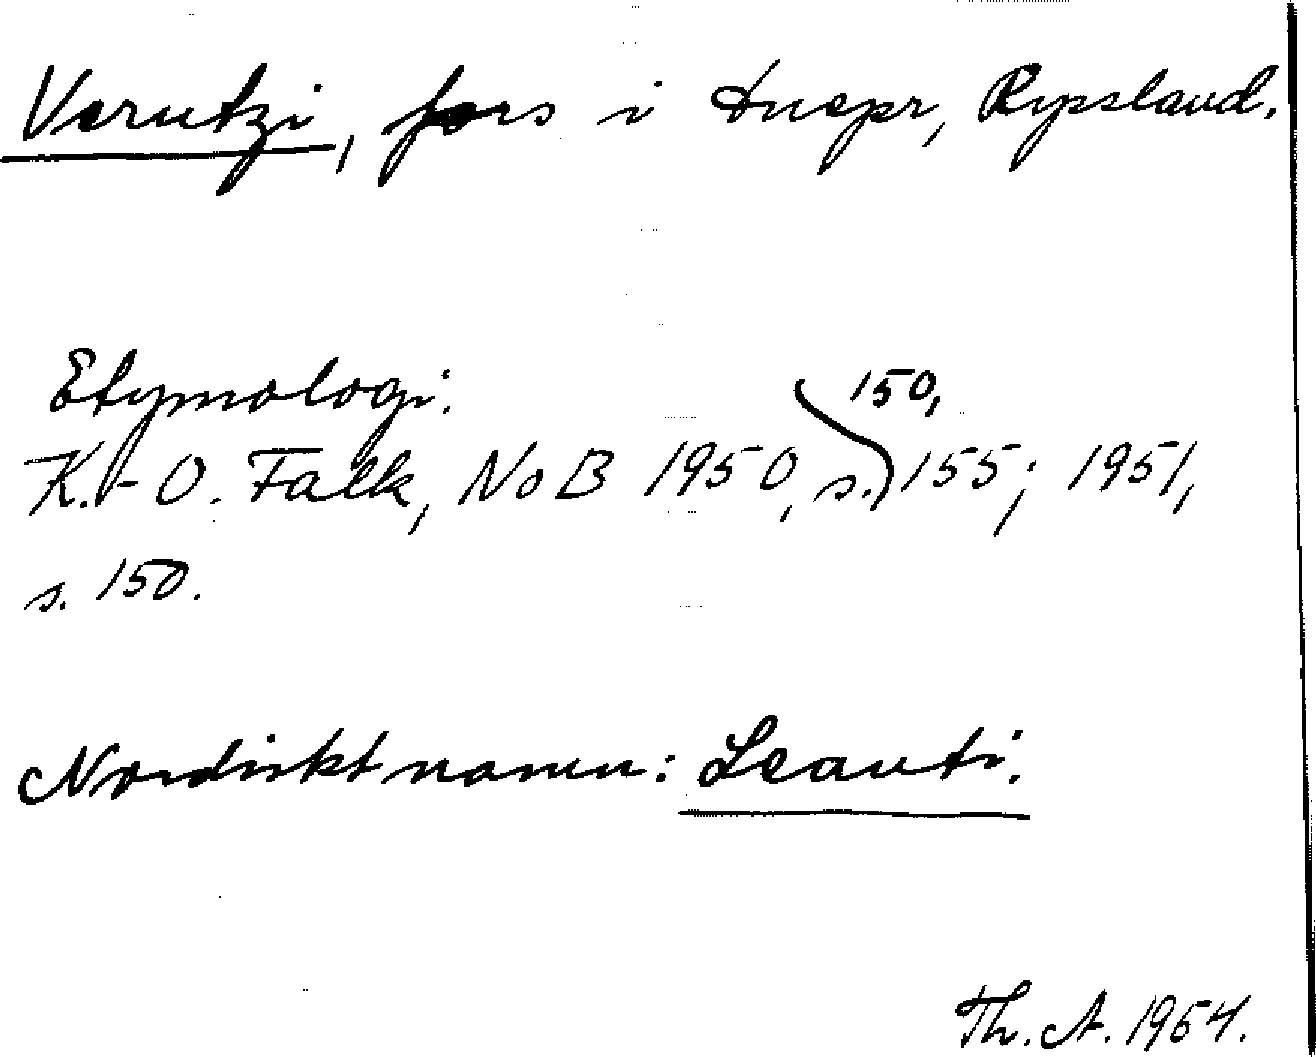 Verutzi, fors i Dnepr, Ryssland.
Etymologi:
K.-O. Falk, NoB 1950, s. 150, 155; 1951,
s. 150.
Nordiskt namn: Leanti.
Th. A. 1954.